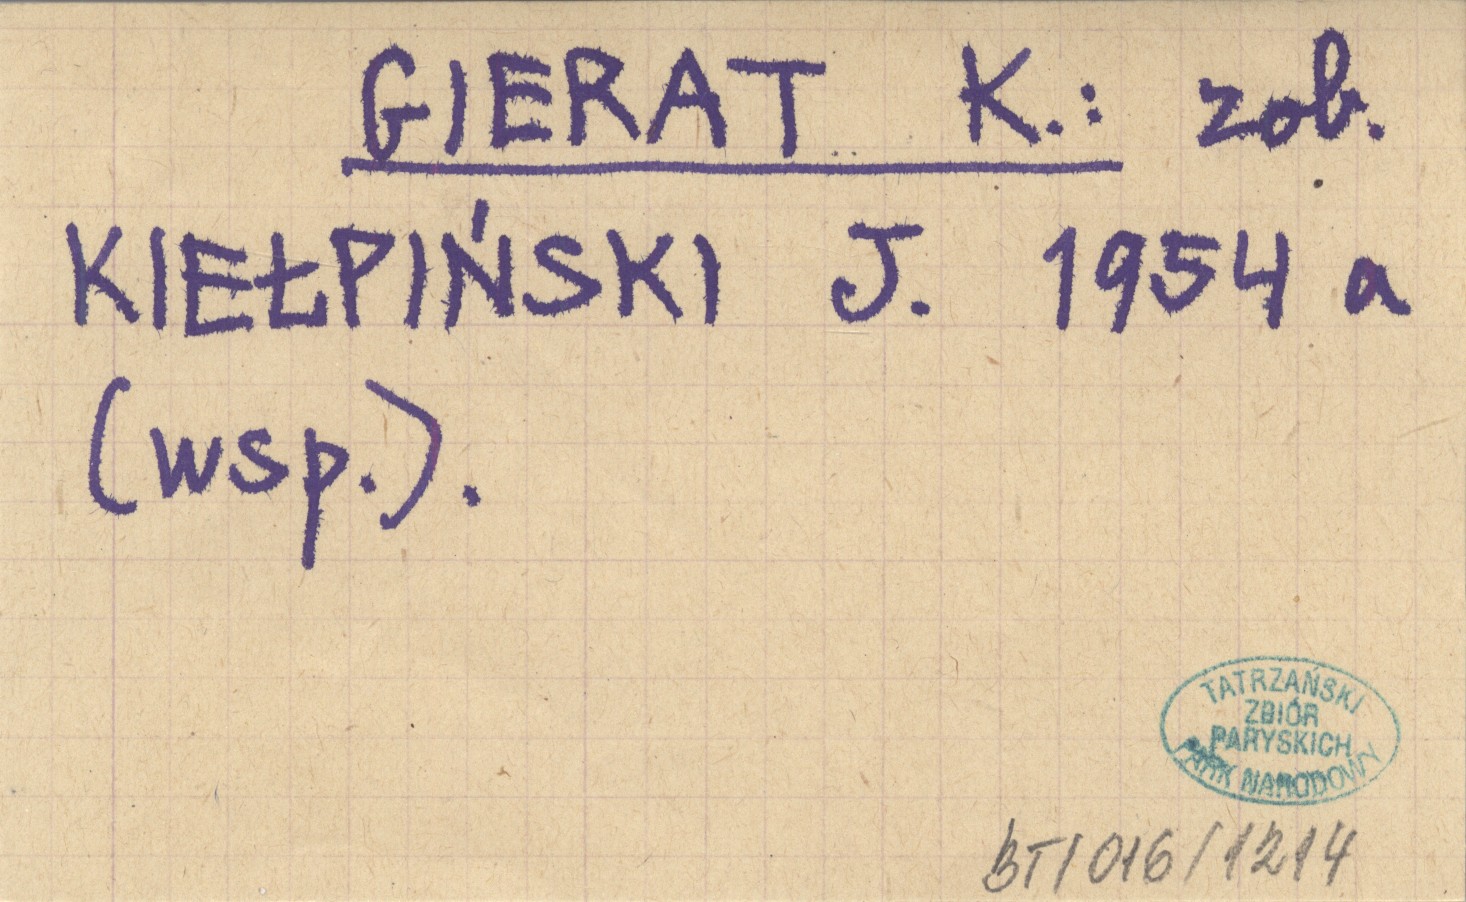 GIERAT K.: zob.
KIEŁPIŃSKI J. 1954 a
(wsp.).
TATRZAŃSKI
ZBIÓR
PARYSKICH
PARK NARODOWY
BT/016/1214